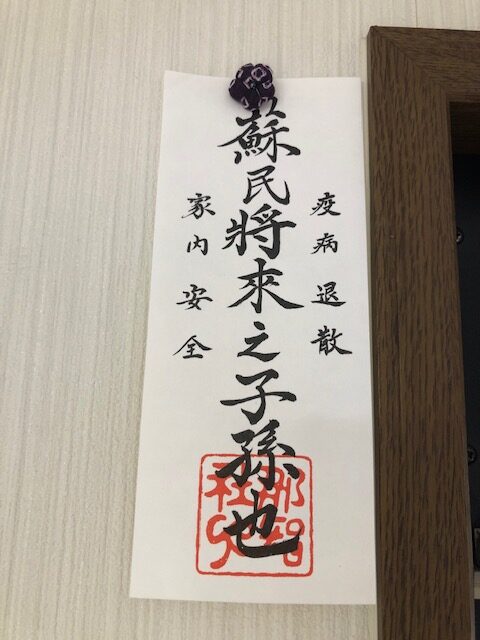 疫病退散
蘇民將來之子孫也
家内安全